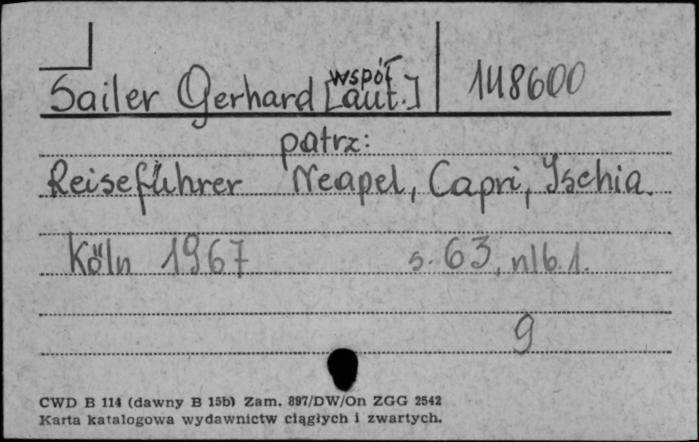 Sailer Gerhard [współaut.] 148600
patrz:
Reiseführer Neapel, Capri, Ischia.
Köln 1967 s. 63, nlb 1.
9
CWD B 114 (dawny B 15b) Zam. 897/DW/On ZGG 2542
Karta katalogowa wydawnictw ciągłych i zwartych.